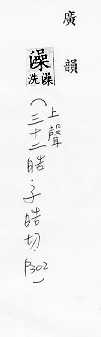 廣韻
澡
洗澡
(上聲
三十二皓·子皓切·P302)